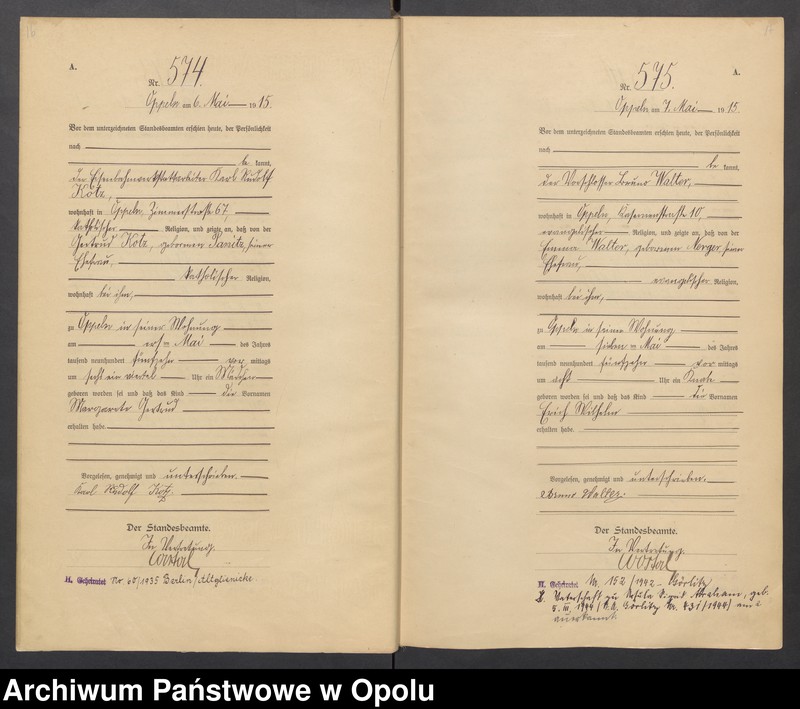 A.
Nr. 574.
Oppeln am 6. Mai 1915.
Vor dem unterzeichneten Standesbeamten erschien heute, der Persönlichkeit
nach
be kannt,
der Eisenbahnwerkstattarbeiter Karl Rudolf
Kotz,
wohnhaft in Oppeln, Zimmerstraße 67,
katholischer Religion, und zeigte an, daß von der
Gertrud Kotz, geborenen seiner
Ehefrau,
katholischer Religion,
wohnhaft bei ihm,
zu Oppeln in seiner Wohnung
am Mai des Jahres
tausend neunhundert fünfzehn vor mittags
um sechs ein viertel Uhr ein Mädchen
geboren worden sei und daß das Kind die Vornamen
Margarete Gertrud
erhalten habe
Vorgelesen, genehmigt und unterschrieben.
Karl Rudolf Kotz.
Der Standesbeamte.
In Vertretung.
H. Geheiratet Nr 60/1935 Berlin/Altglienicke.
A.
Nr. 575.
Oppeln am 7. Mai 1915
Vor dem unterzeichneten Standesbeamten erschien heute, der Persönlichkeit
nach
be kannt,
der Vorschlosser Bruno Walter,
wohnhaft in Oppeln, Kasernenstraße 10,
evangelischer Religion, und zeigte an, daß von der
Emma Walter, geborenen seiner
Ehefrau,
evangelischer Religion,
wohnhaft bei ihm,
zu Oppeln in seiner Wohnung
am sieben Mai des Jahres
tausend neunhundert fünfzehn vor mittags
um acht Uhr ein Knabe
geboren worden sei und daß das Kind die Vornamen
Erich Wilhelm
erhalten habe.
Vorgelesen, genehmigt und unterschrieben.
Bruno Walter.
Der Standesbeamte.
In Vertretung.
H. Geheiratet Nr. 152/1942 Görlitz
Vaterschaft zu Abraham, geb.
5. III. 1944 (S.A. Görlitz Nr. 431/1944)
anerkannt.
Archiwum Państwowe w Opolu